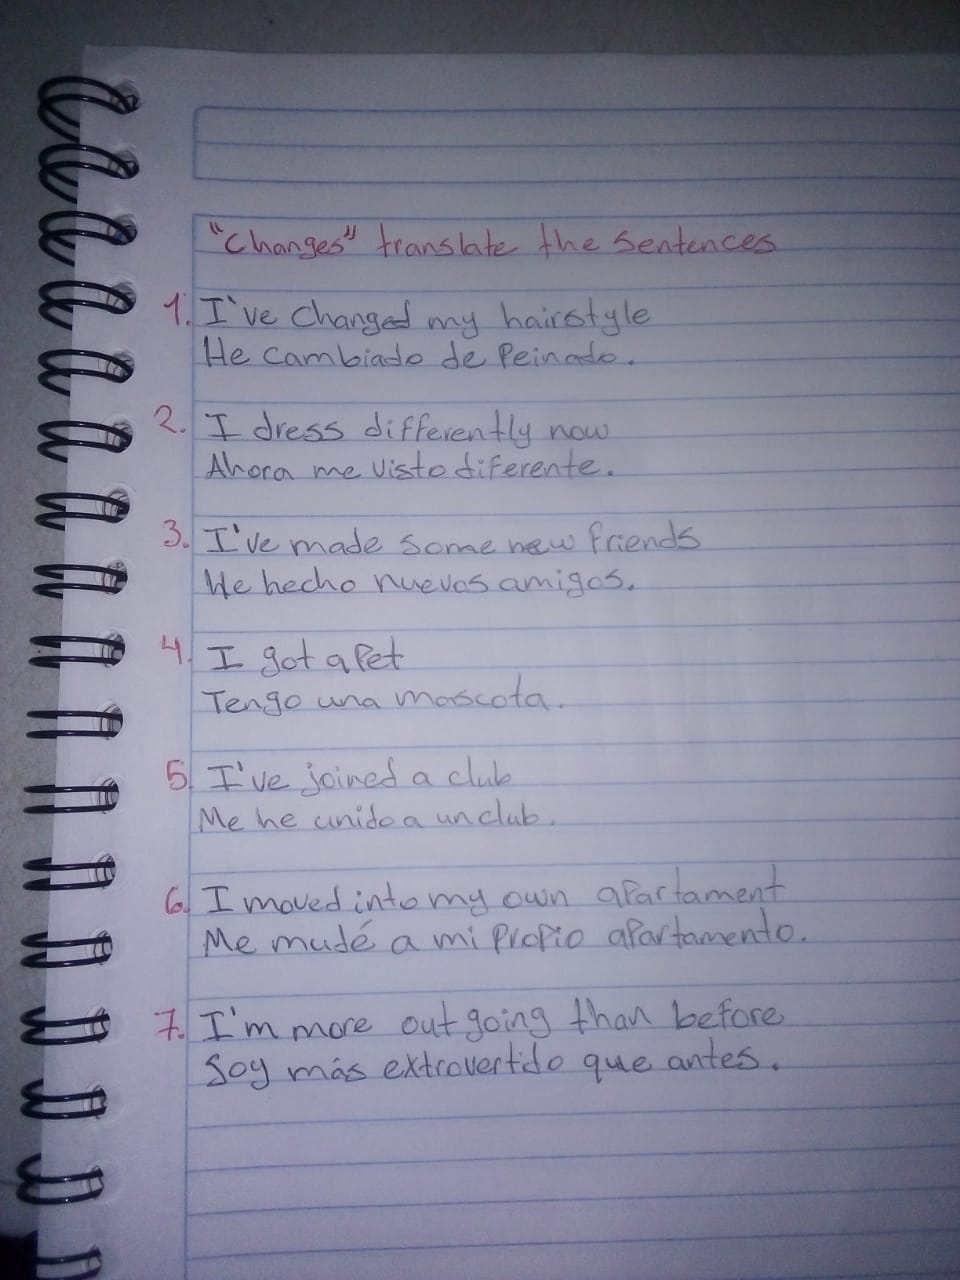 "Changes" translate the sentences
1. I've changed my hairstyle
He cambiado de Peinado.
2. I dress differently now
Ahora me visto diferente.
3. I've made some new friends
He hecho nuevos amigos.
4. I got a Pet
Tengo una mascota.
5. I've joined a club
Me he unido a un club.
6. I moved into my own apartament
Me mudé a mi propio apartamento.
7. I'm more outgoing than before
Soy más extrovertido que antes.